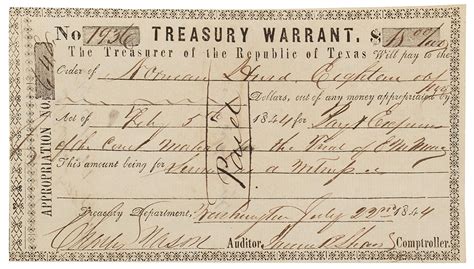 No 1936 TREASURY WARRANT. $ 18
The Treasurer of the Republic of Texas Will pay to the
Order of Norman Hurd Eighteen
Dollars, out of any money appropriated by
Act of Feby 5th 1844 for Pay & Expenses
of the Court Martial in the trial of
This amount being for
Treasury Department, Washington July 22nd 1844
Charles Mason Auditor. James B Shaw Comptroller.
APPROPRIATION NO.
Paid